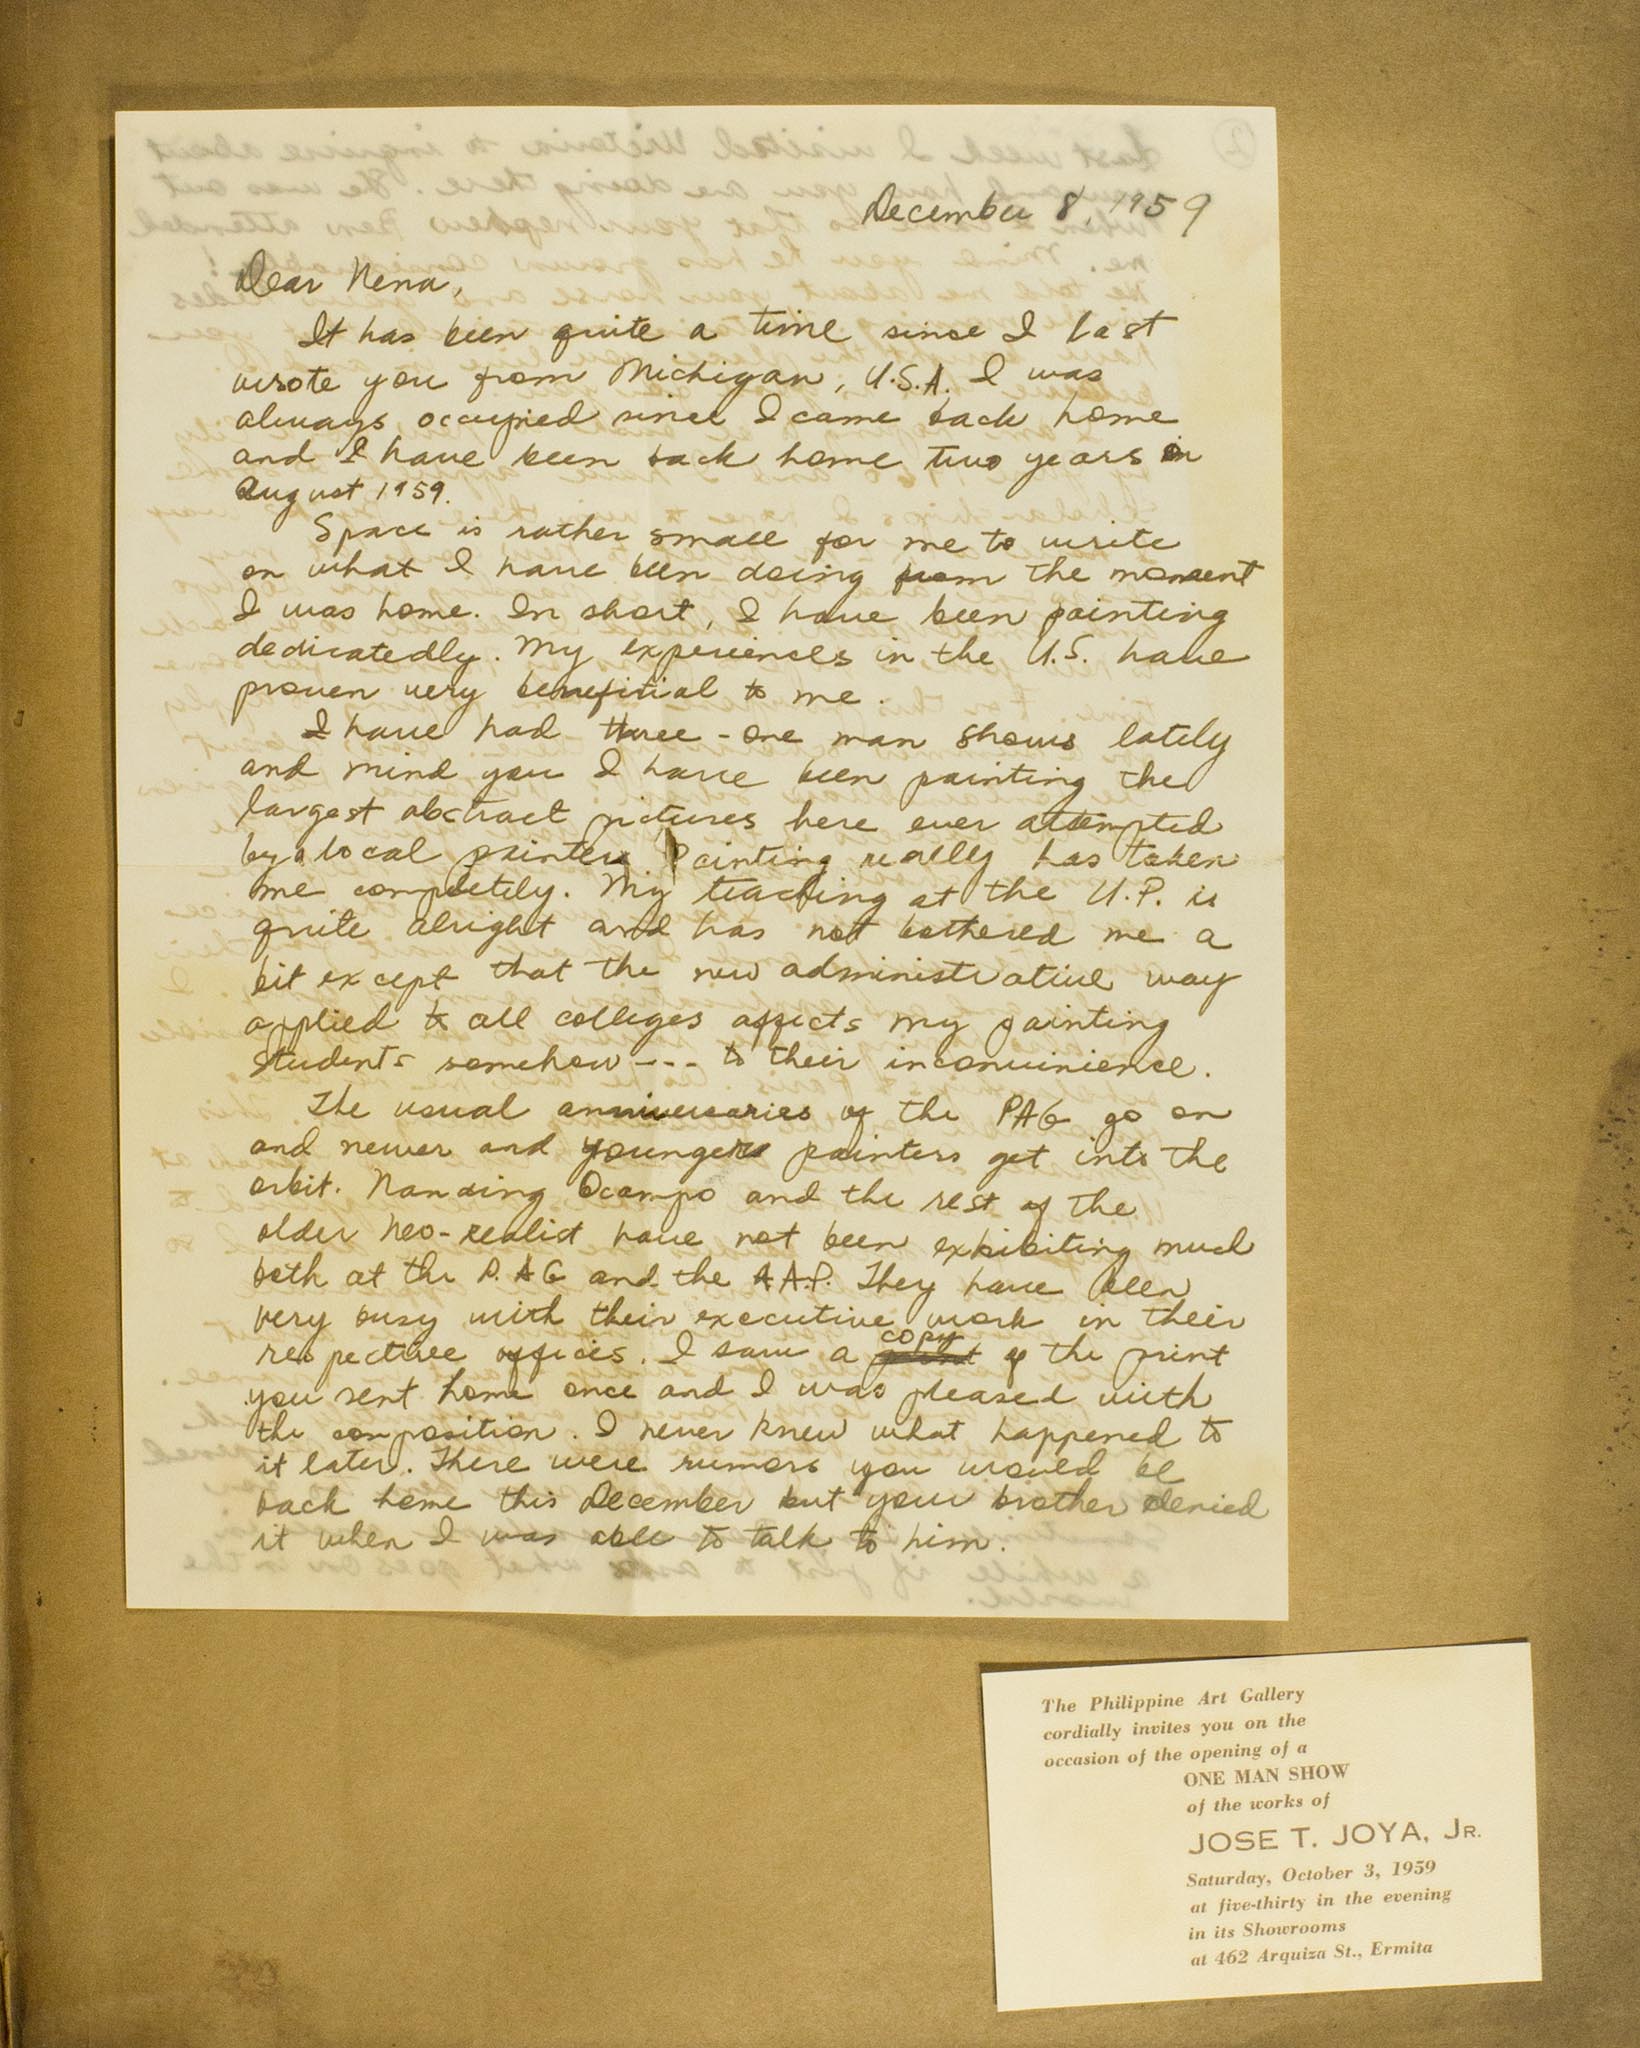 December 8, 1959
Dear Nena,
It has been quite a time since I last
wrote you from Michigan, U.S.A. I was
always occupied since I came back home
and I have been back home two years in
August 1959.
Space is rather small for me to write
on what I have been doing from the moment
I was home. In short, I have been painting
dedicatedly. My experiences in the U.S. have
proven very benefitial to me.
I have had three-one man shows lately
and mind you I have been painting the
largest abstract pictures here ever attempted
by a local painter. Painting really has taken
me completely. My teaching at the U.P. is
quite alright and has not bothered me a
bit except that the new administrative way
applied to all colleges affects my painting
students somehow --- to their inconvinience.
The usual anniversaries of the PAG go on
and newer and younger painters get into the
orbit. Nanding Ocampo and the rest of the
older neo-realist have not been exhibiting much
both at the P.AG and the A.A.P. They have been
very busy with their executive work in their
respective offices. I saw a copy of the print
you sent home once and I was pleased with
the composition. I never knew what happened to
it later. There were rumors you would be
back home this December but your brother denied
it when I was able to talk to him.
The Philippine Art Gallery
cordially invites you on the
occasion of the opening of a
ONE MAN SHOW
of the works of
JOSE T. JOYA, JR.
Saturday, October 3, 1959
at five-thirty in the evening
in its Showrooms
at 462 Arquiza St., Ermita